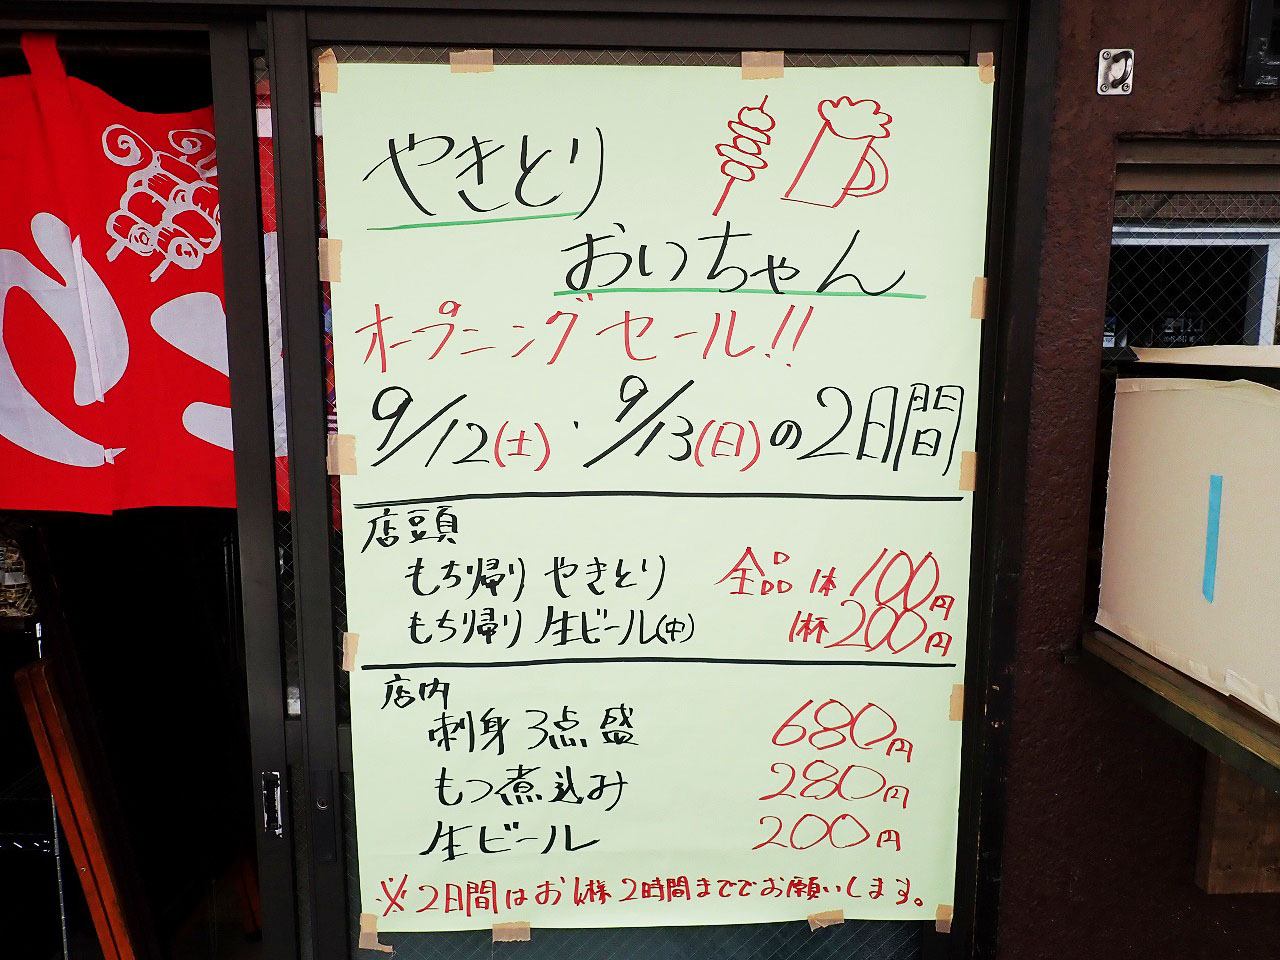 やきとり
おいちゃん
オープニングセール!!
9/12(土)・9/13(日)の2日間
店頭
もち帰り やきとり 全品 1本 100円
もち帰り 生ビール(中) 1杯 200円
店内
刺身3点盛 680円
もつ煮込み 280円
生ビール 200円
※2日間はお1人様2時間まででお願いします。